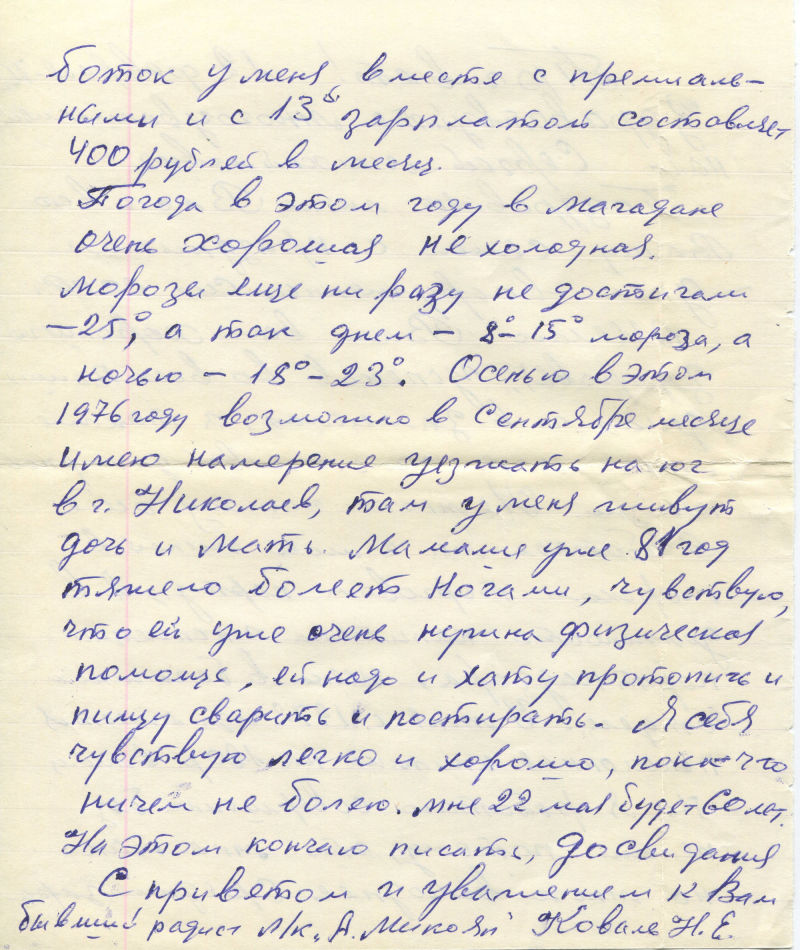 боток у меня вместе с премиаль-
ными и с 13й зарплатой составляет
400 рублей в месяц.
Погода в этом году в Магадане
очень хорошая не холодная.
морозы еще ни разу не достигали
-25°, а так днем - 8°-15° мороза, а
ночью - 18°-23°. Осенью в этом
1976 году возможно в Сентябре месяце
имею намерение уезжать на юг
в г. Николаев, там у меня живут
дочь и Мать. Мамаше уже 81 год
тяжело болеет ногами, чувствую,
что ей уже очень нужна физическая
помощь, ей надо и хату протопить и
пищу сварить и постирать. Я себя
чувствую легко и хорошо, пока что
ничем не болею. мне 22 мая будет 60 лет.
На этом кончаю писать, до свидания
С приветом и уважением к Вам
бывший радист л/к „А. Микоян" Коваль Н. Е.